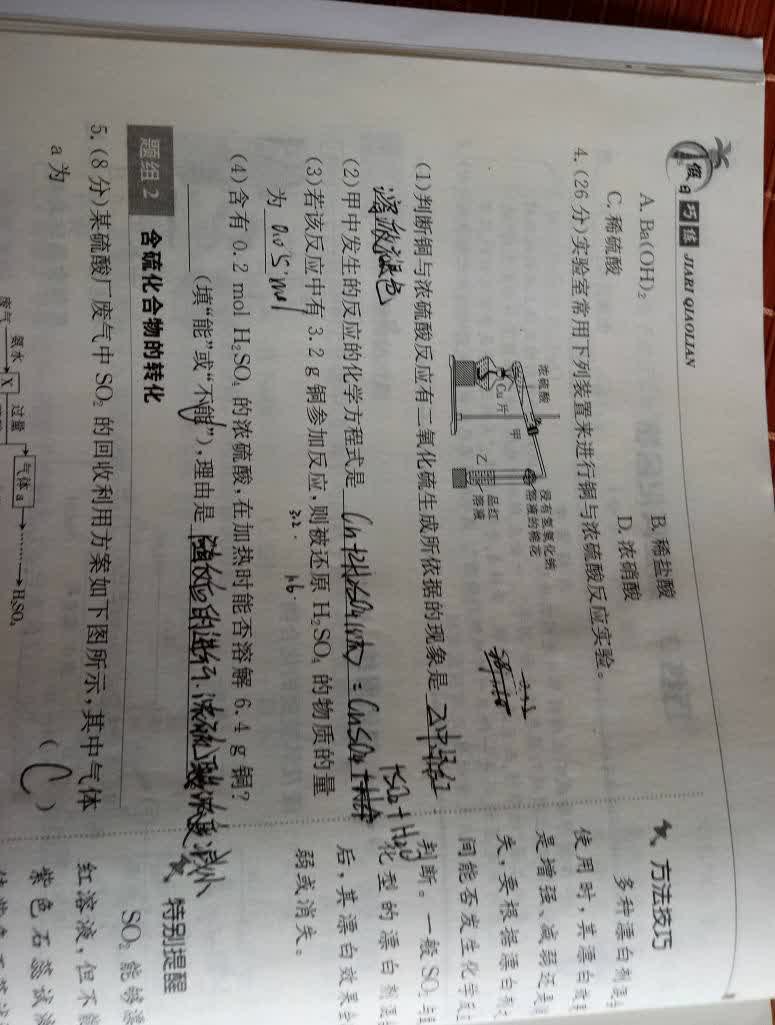 假日巧练 JIARI QIAOLIAN
A. Ba(OH)₂
B. 稀盐酸
C. 稀硫酸
D. 浓硝酸
4. (26 分)实验室常用下列装置来进行铜与浓硫酸反应实验。
浓硫酸
Cu 片
甲
乙
品红
溶液
浸有氢氧化钠
溶液的棉花
(1)判断铜与浓硫酸反应有二氧化硫生成所依据的现象是 乙中品红
溶液褪色
(2)甲中发生的反应的化学方程式是 = CuSO₄
+SO₂ + H₂O
(3)若该反应中有 3.2 g 铜参加反应,则被还原 H₂SO₄ 的物质的量
为 0.05mol
(4)含有 0.2 mol H₂SO₄ 的浓硫酸,在加热时能否溶解 6.4 g 铜?
(填“能”或“不能”),理由是 的进行,浓硫酸浓度减小
题组 2 含硫化合物的转化
5. (8 分)某硫酸厂废气中 SO₂ 的回收利用方案如下图所示,其中气体
a 为 ( C )
废气
氨水
X
过量
气体 a
H₂SO₄
方法技巧
使用时,其漂白
是增强、减弱还
失,要根据漂白
间能否发生化学
判断。一般 SO₂ 与
化型的漂白剂
后,其漂白效果
弱或消失。
特别提醒
SO₂ 能
红溶液,但不
紫色石蕊试